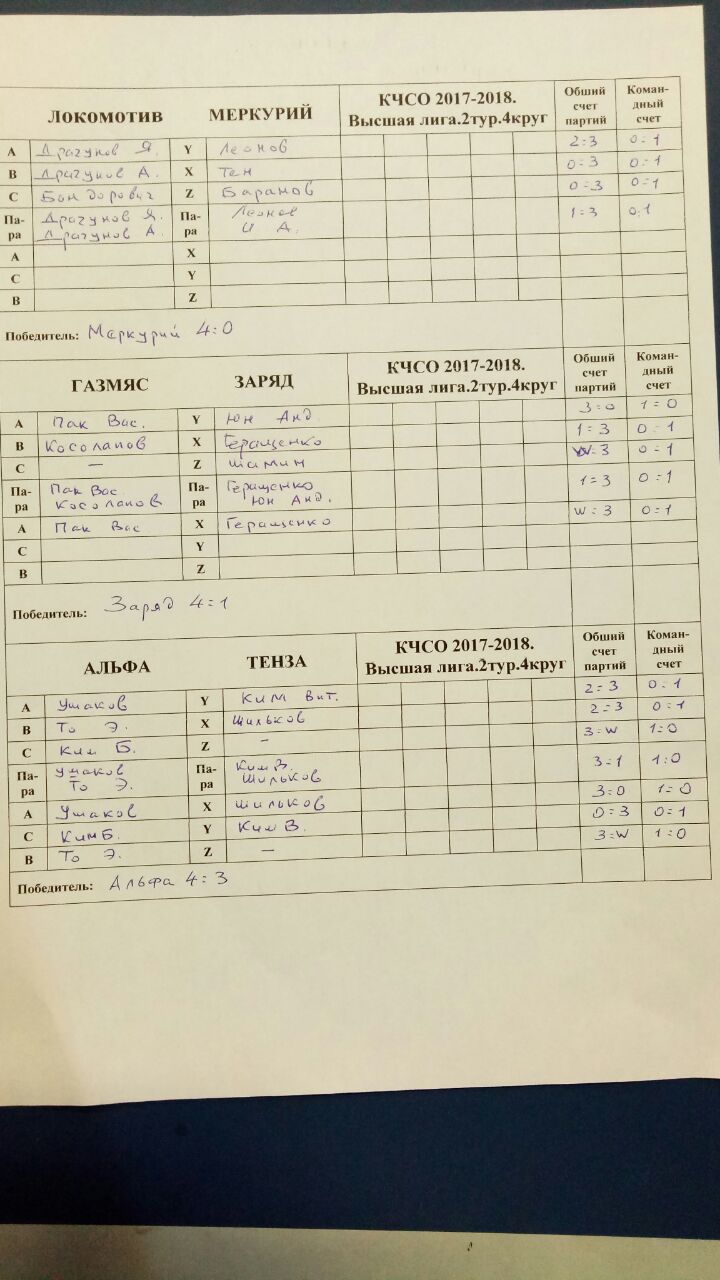 ЛОКОМОТИВ МЕРКУРИЙ КЧСО 2017-2018. Высшая лига.2тур.4круг Обший счет партий Коман-дный счет
A Драгунов Я. Y Леонов 2=3 0=1
B Драгунов А. X Тен 0=3 0=1
C Бондорович Z Баранов 0=3 0=1
Па-ра Драгунов Я. Драгунов А. Па-ра Леонов И А. 1=3 0:1
A X
C Y
B Z
Победитель: Меркурий 4:0
ГАЗМЯС ЗАРЯД КЧСО 2017-2018. Высшая лига.2тур.4круг Обший счет партий Коман-дный счет
A Пак Вас. Y Юн Анд 3=0 1=0
B Косолапов X Геращенко 1=3 0=1
C — Z Шамин W=3 0=1
Па-ра Пак Вас Косолапов Па-ра Геращенко Юн Анд. 1=3 0=1
A Пак Вас X Геращенко W=3 0=1
C Y
B Z
Победитель: Заряд 4=1
АЛЬФА ТЕНЗА КЧСО 2017-2018. Высшая лига.2тур.4круг Обший счет партий Коман-дный счет
A Ушаков Y Ким Вит. 2=3 0=1
B То Э. X Шильков 2=3 0=1
C Ким Б. Z — 3=W 1=0
Па-ра Ушаков То Э. Па-ра Ким В. Шильков 3=1 1:0
A Ушаков X Шильков 3:0 1=0
C Ким Б. Y Ким В. 0=3 0=1
B То Э. Z — 3=W 1=0
Победитель: Альфа 4=3